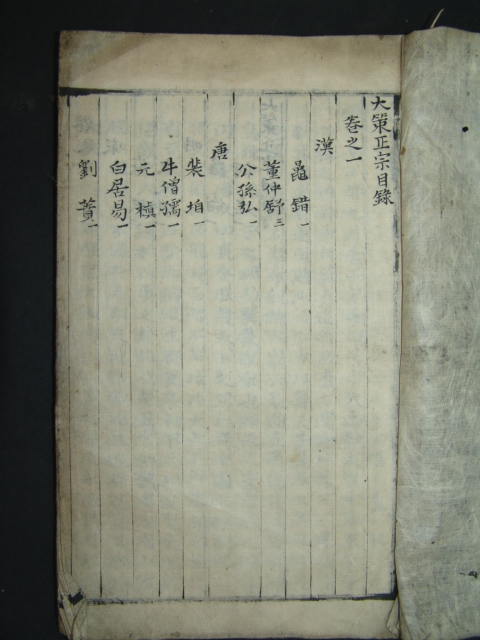 大策正宗目錄
卷之一
漢
鼂錯一
董仲舒三
公孫弘一
唐
裴垍一
牛僧孺一
元稹一
白居易一
劉蕡一